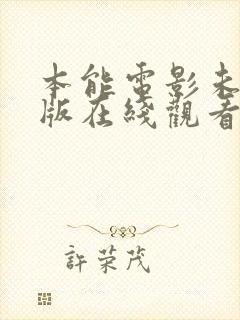 本能電影未
版在綫觀看
許荣茂